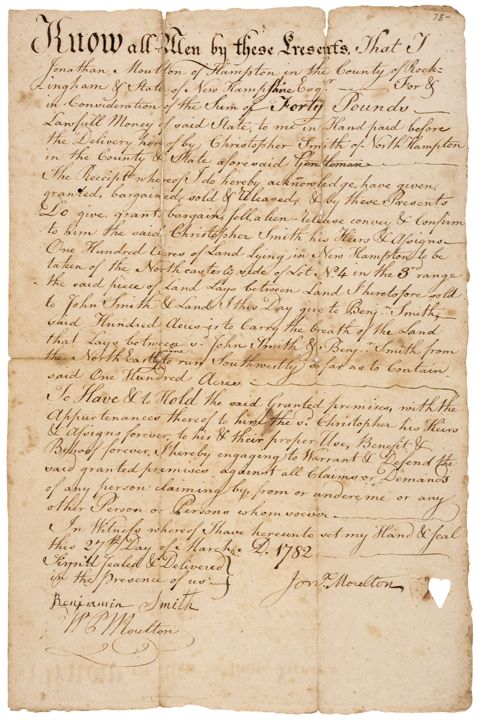 75-
Know all Men by these Presents, That I
Jonathan Moulton of Hampton in the County of Rock-
ingham & State of New Hampshire Esqr For &
in Consideration of the Sum of Forty Pounds
Lawfull Money of said State, to me in Hand paid before
the Delivery hereof by Christopher Smith of North Hampton
in the County & State aforesaid Gentleman
The Receipt whereof I do hereby acknowledge, have given
granted, bargained, sold & released, & by these Presents
Do give, grant, bargain, sell, alien release convey & Confirm
to him the said Christopher Smith his Heirs & Assigns
One Hundred Acres of Land Lying in New Hampton to be
taken of the Northeasterly side of Lot No. 4 in the 3rd range
the said piece of Land Lays between Land I heretofore sold
to John Smith & Land I this Day gave to Benjn. Smith,
said Hundred Acres is to Carry the breath of the Land
that Lays between sd. John Smith & Benjn. Smith from
the North Easterly to run Southwestly so far as to Contain
said One Hundred Acres
To Have & to Hold the said Granted premises, with the
Appurtenances thereof to him the sd. Christopher his Heirs
& Assigns forever, to his & their proper Use, Benefit &
Behoof forever, I hereby engaging to Warrant & Defend the
said granted premises against all Claims or Demands
of any person claiming by, from or under me or any
other Person or Persons whomsoever
In Witness whereof I have hereunto set my Hand & Seal
this 27th Day of March D. 1782
Sign'd Sealed & Delivered
in the presence of us
Jona. Moulton
Benjamin Smith
Wm P Moulton